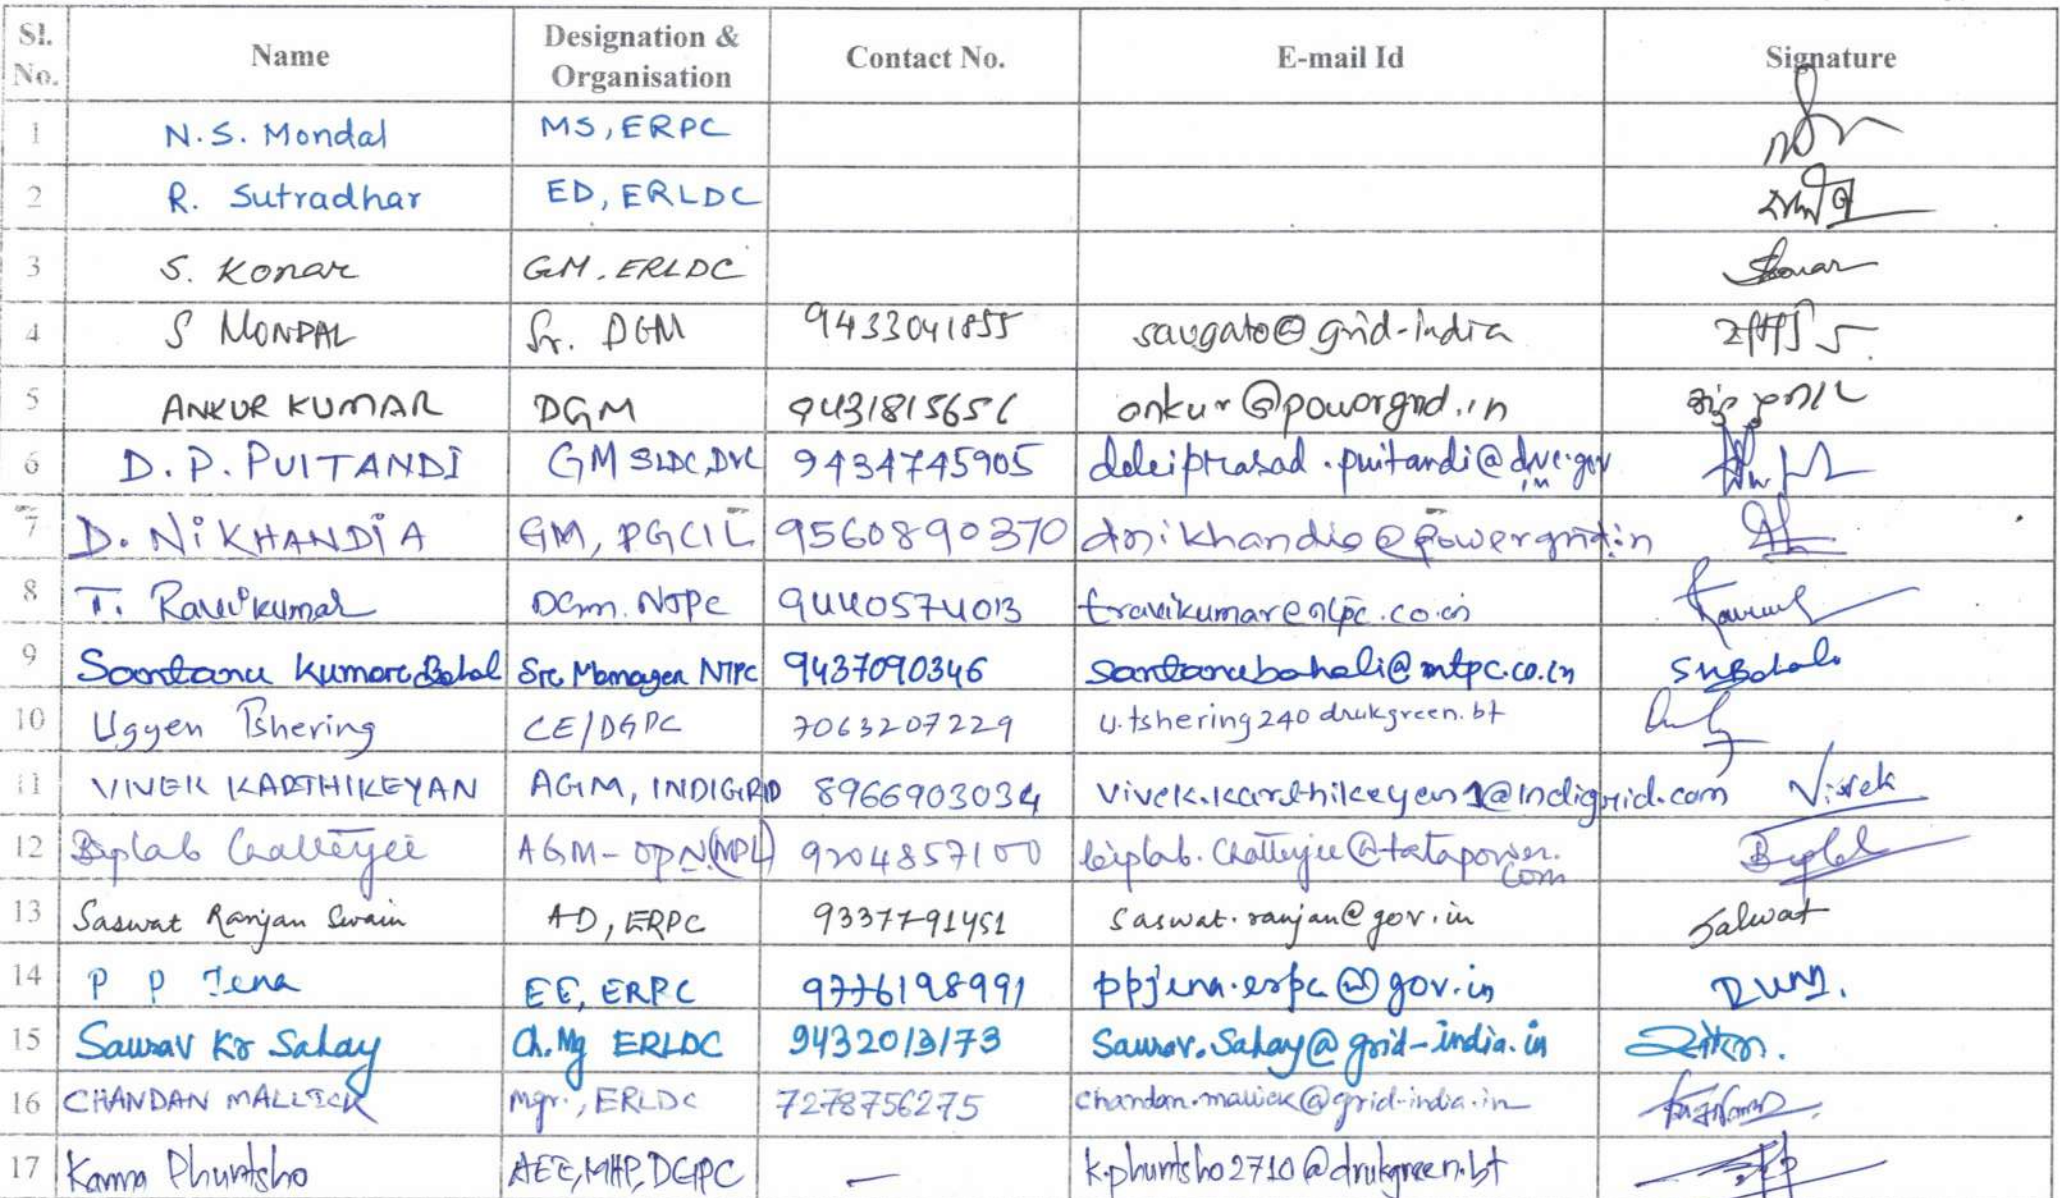 Sl. No. Name Designation & Organisation Contact No. E-mail Id Signature
1 N.S. Mondal MS, ERPC
2 R. Sutradhar ED, ERLDC
3 S. Konar GM. ERLDC
4 S MONDAL Sr. DGM 9433041855 saugato@grid-india
5 ANKUR KUMAR DGM 9431815656 ankur@powergrid.in
6 D.P. PUITANDI GM SLDC, DVC 9434745905 puitandi@dvc.gov.in
7 D. NiKHANDiA GM, PGCIL 9560890370 dnikhandia@powergrid.in
8 T. Ravikumar DGm. NTPC 9440574013 travikumar@ntpc.co.in
9 Santanu Kumar Sr Manager NTPC 9437090346 santanubahali@ntpc.co.in
10 Ugyen Tshering CE/DGPC 7063207229 u.tshering240 drukgreen.bt
11 VIVEK KARTHIKEYAN AGM, INDIGRID 8966903034 vivek.karthikeyan1@indigrid.com Vivek
12 Biplab Chatterjee AGM-OPN(MPL) 9204857100 biplab.Chatterjee@tatapower.com
13 Saswat Ranjan Swain AD, ERPC 9337791451 saswat.ranjan@gov.in Saswat
14 P P Jena EE, ERPC 9776198991 ppjena.erpc@gov.in
15 Saurav Kr Sahay Ch.Mg ERLDC 9432013173 Saurav.Sahay@grid-india.in
16 CHANDAN MALLICK Mgr., ERLDC 7278756275 chandan.mallick@grid-india.in
17 Karma Phuntsho AEE, MHP, DGPC — k.phuntsho2710@drukgreen.bt